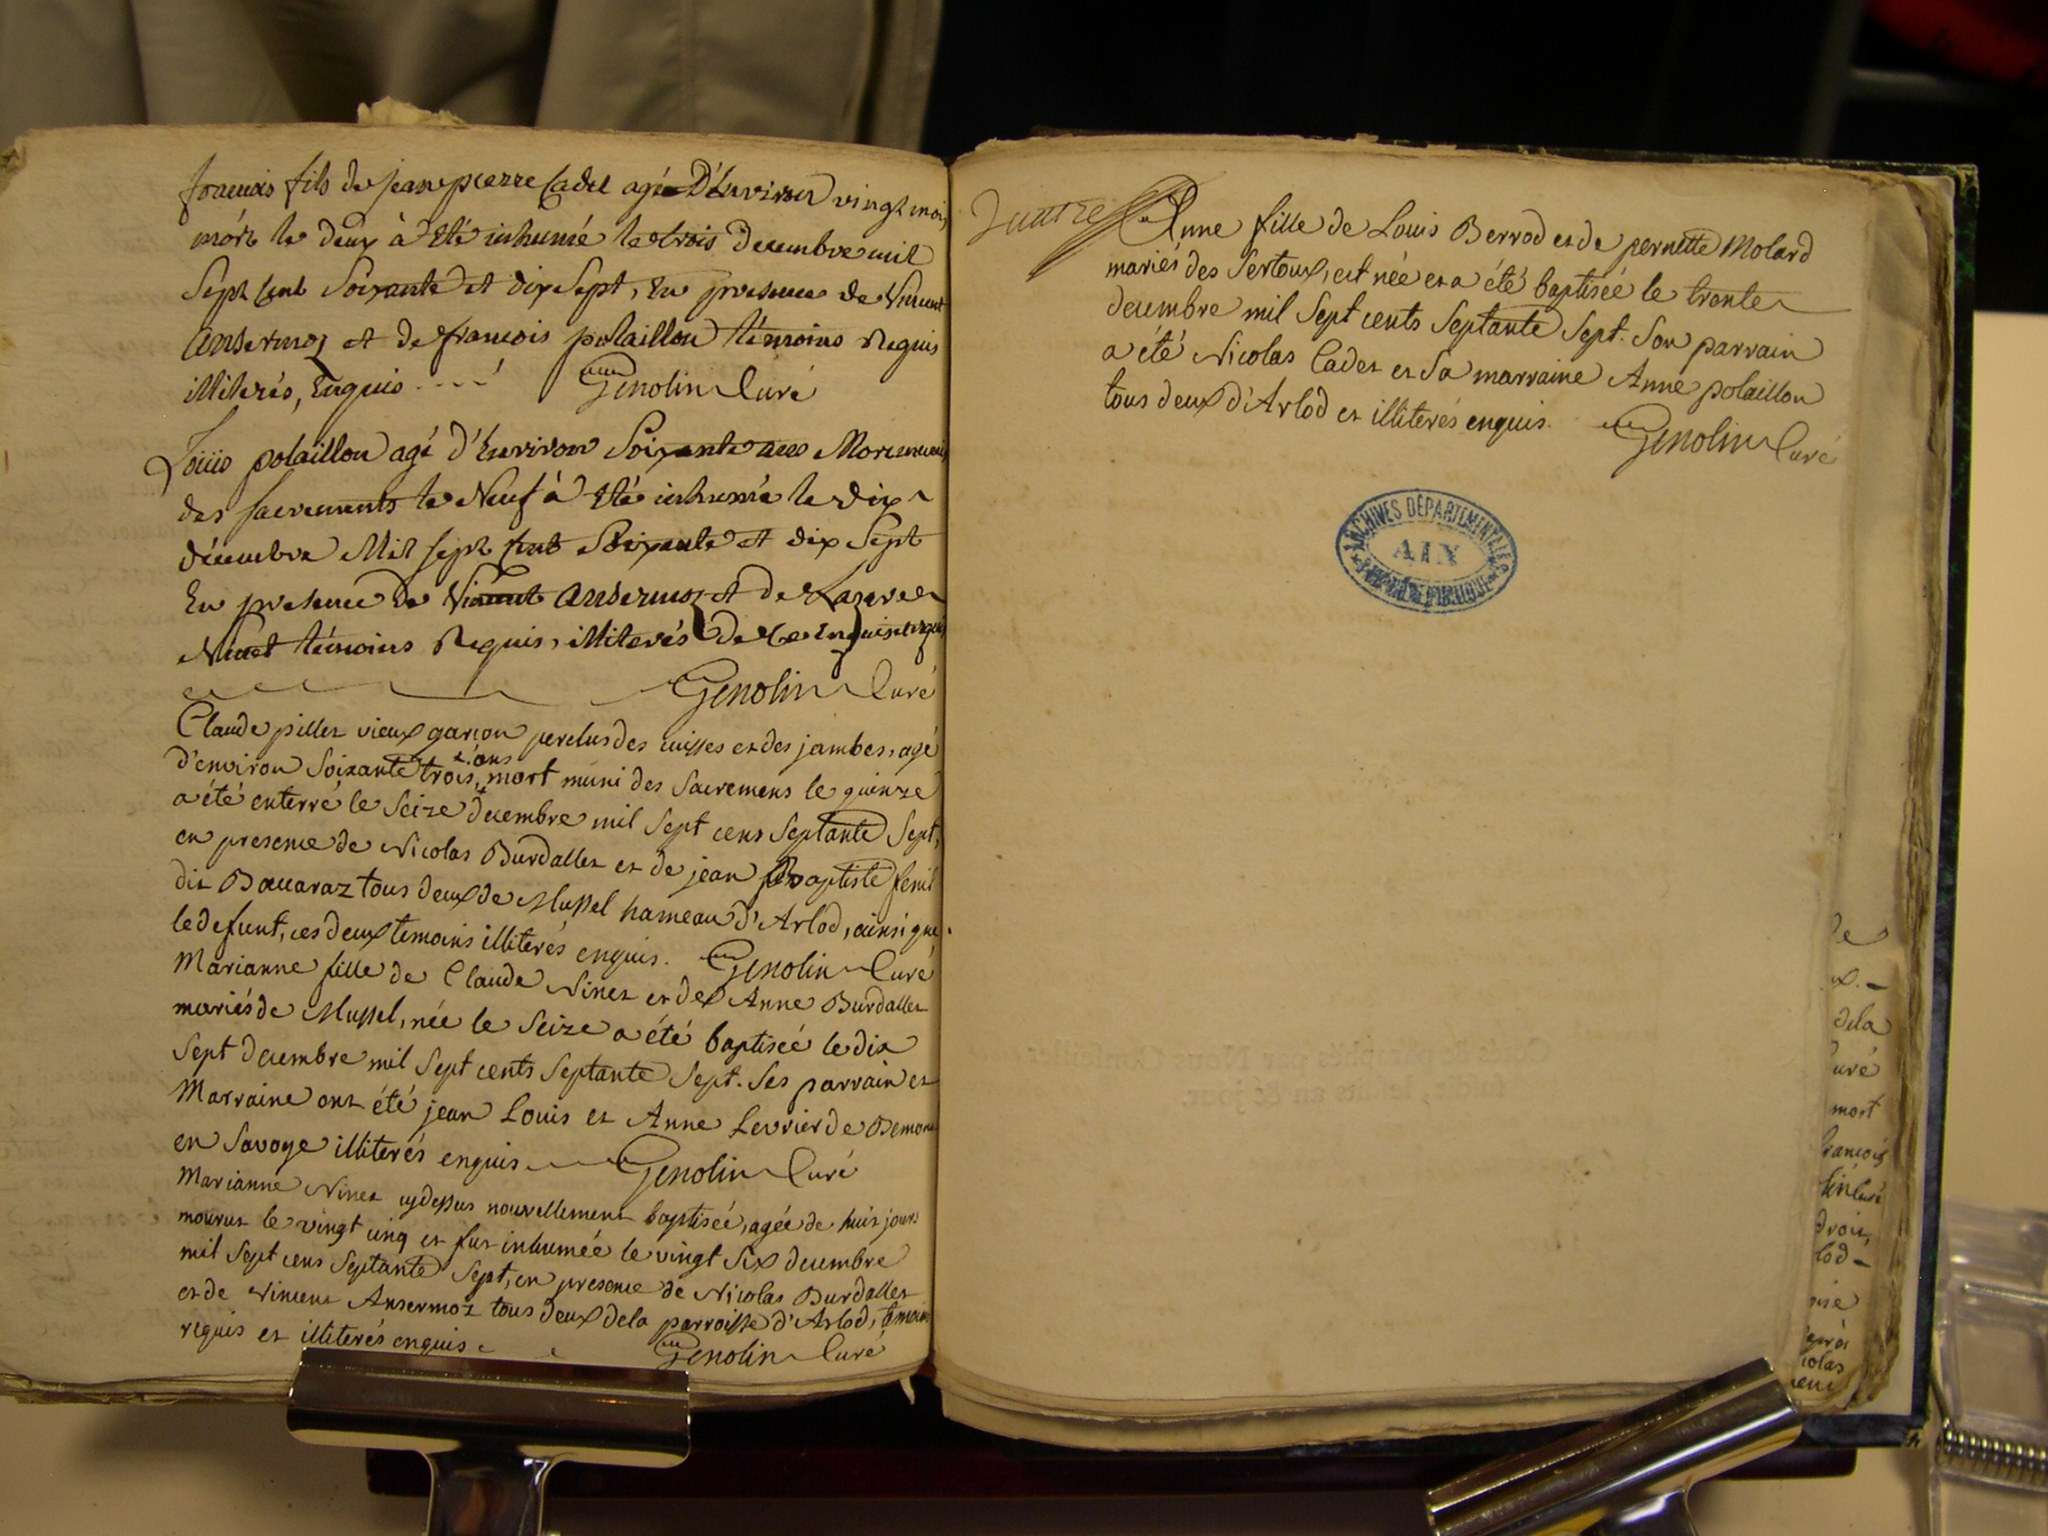 francois fils de jean pierre Cadet agé D'Environ vingt mois
mort le deux à Eté inhumé le trois decembre mil
Sept Cent Soixante et dix Sept, En presence de Vincent
Ansermoz et de francois polaillon témoins Requis
illiterés, Enquis Genolin Curé
Loüis polaillon agé d'Environ Soixante ans Mort muni
des sacrements le Neuf à Eté inhumé le dix
décembre Mil sept Cent Soixante et dix Sept
En presence De Vincent Ansermoz et de Lazare
Ninet témoins Requis, illiterés de ce Enquis
Genolin Curé
Claude pillet vieux garçon perclus des cuisses et des jambes, agé
d'environ Soixante trois ans, mort muni des Sacremens le quinze
a été enterré le Seize decembre mil Sept cens Septante Sept,
en presence de Nicolas Burdallet et de jean Baptiste fenil
dit Bouaraz tous deux de Mussel hameau d'Arlod, ainsi que
le defunt, ces deux temoins illiterés enquis. Genolin Curé
Marianne fille de Claude Ninet et de Anne Burdallet
mariés de Mussel, née le Seize a été baptisée le dix
Sept decembre mil Sept cents Septante Sept. Ses parrain et
Marraine ont été jean Louis et Anne Levrier de
en Savoye illiterés enquis Genolin Curé
Marianne Ninet cydessus nouvellement baptisée, agée de huit jours
mourut le vingt cinq et fut inhumée le vingt Six decembre
mil Sept cens Septante Sept, en presence de Nicolas Burdallet
et de Vincent Ansermoz tous deux dela parroisse d'Arlod, temoins
requis et illiterés enquis Genolin Curé
Anne fille de Louis Berrod et de pernette Molard
mariés des Sertoux, est née et a été baptisée le trente
decembre mil Sept cents Septante Sept. Son parrain
a été Nicolas Cadet et Sa marraine Anne polaillon
tous deux d'Arlod et illiterés enquis. Genolin Curé
ARCHIVES DÉPARTEMENTALES
AIN
dela
Curé
mort
francois